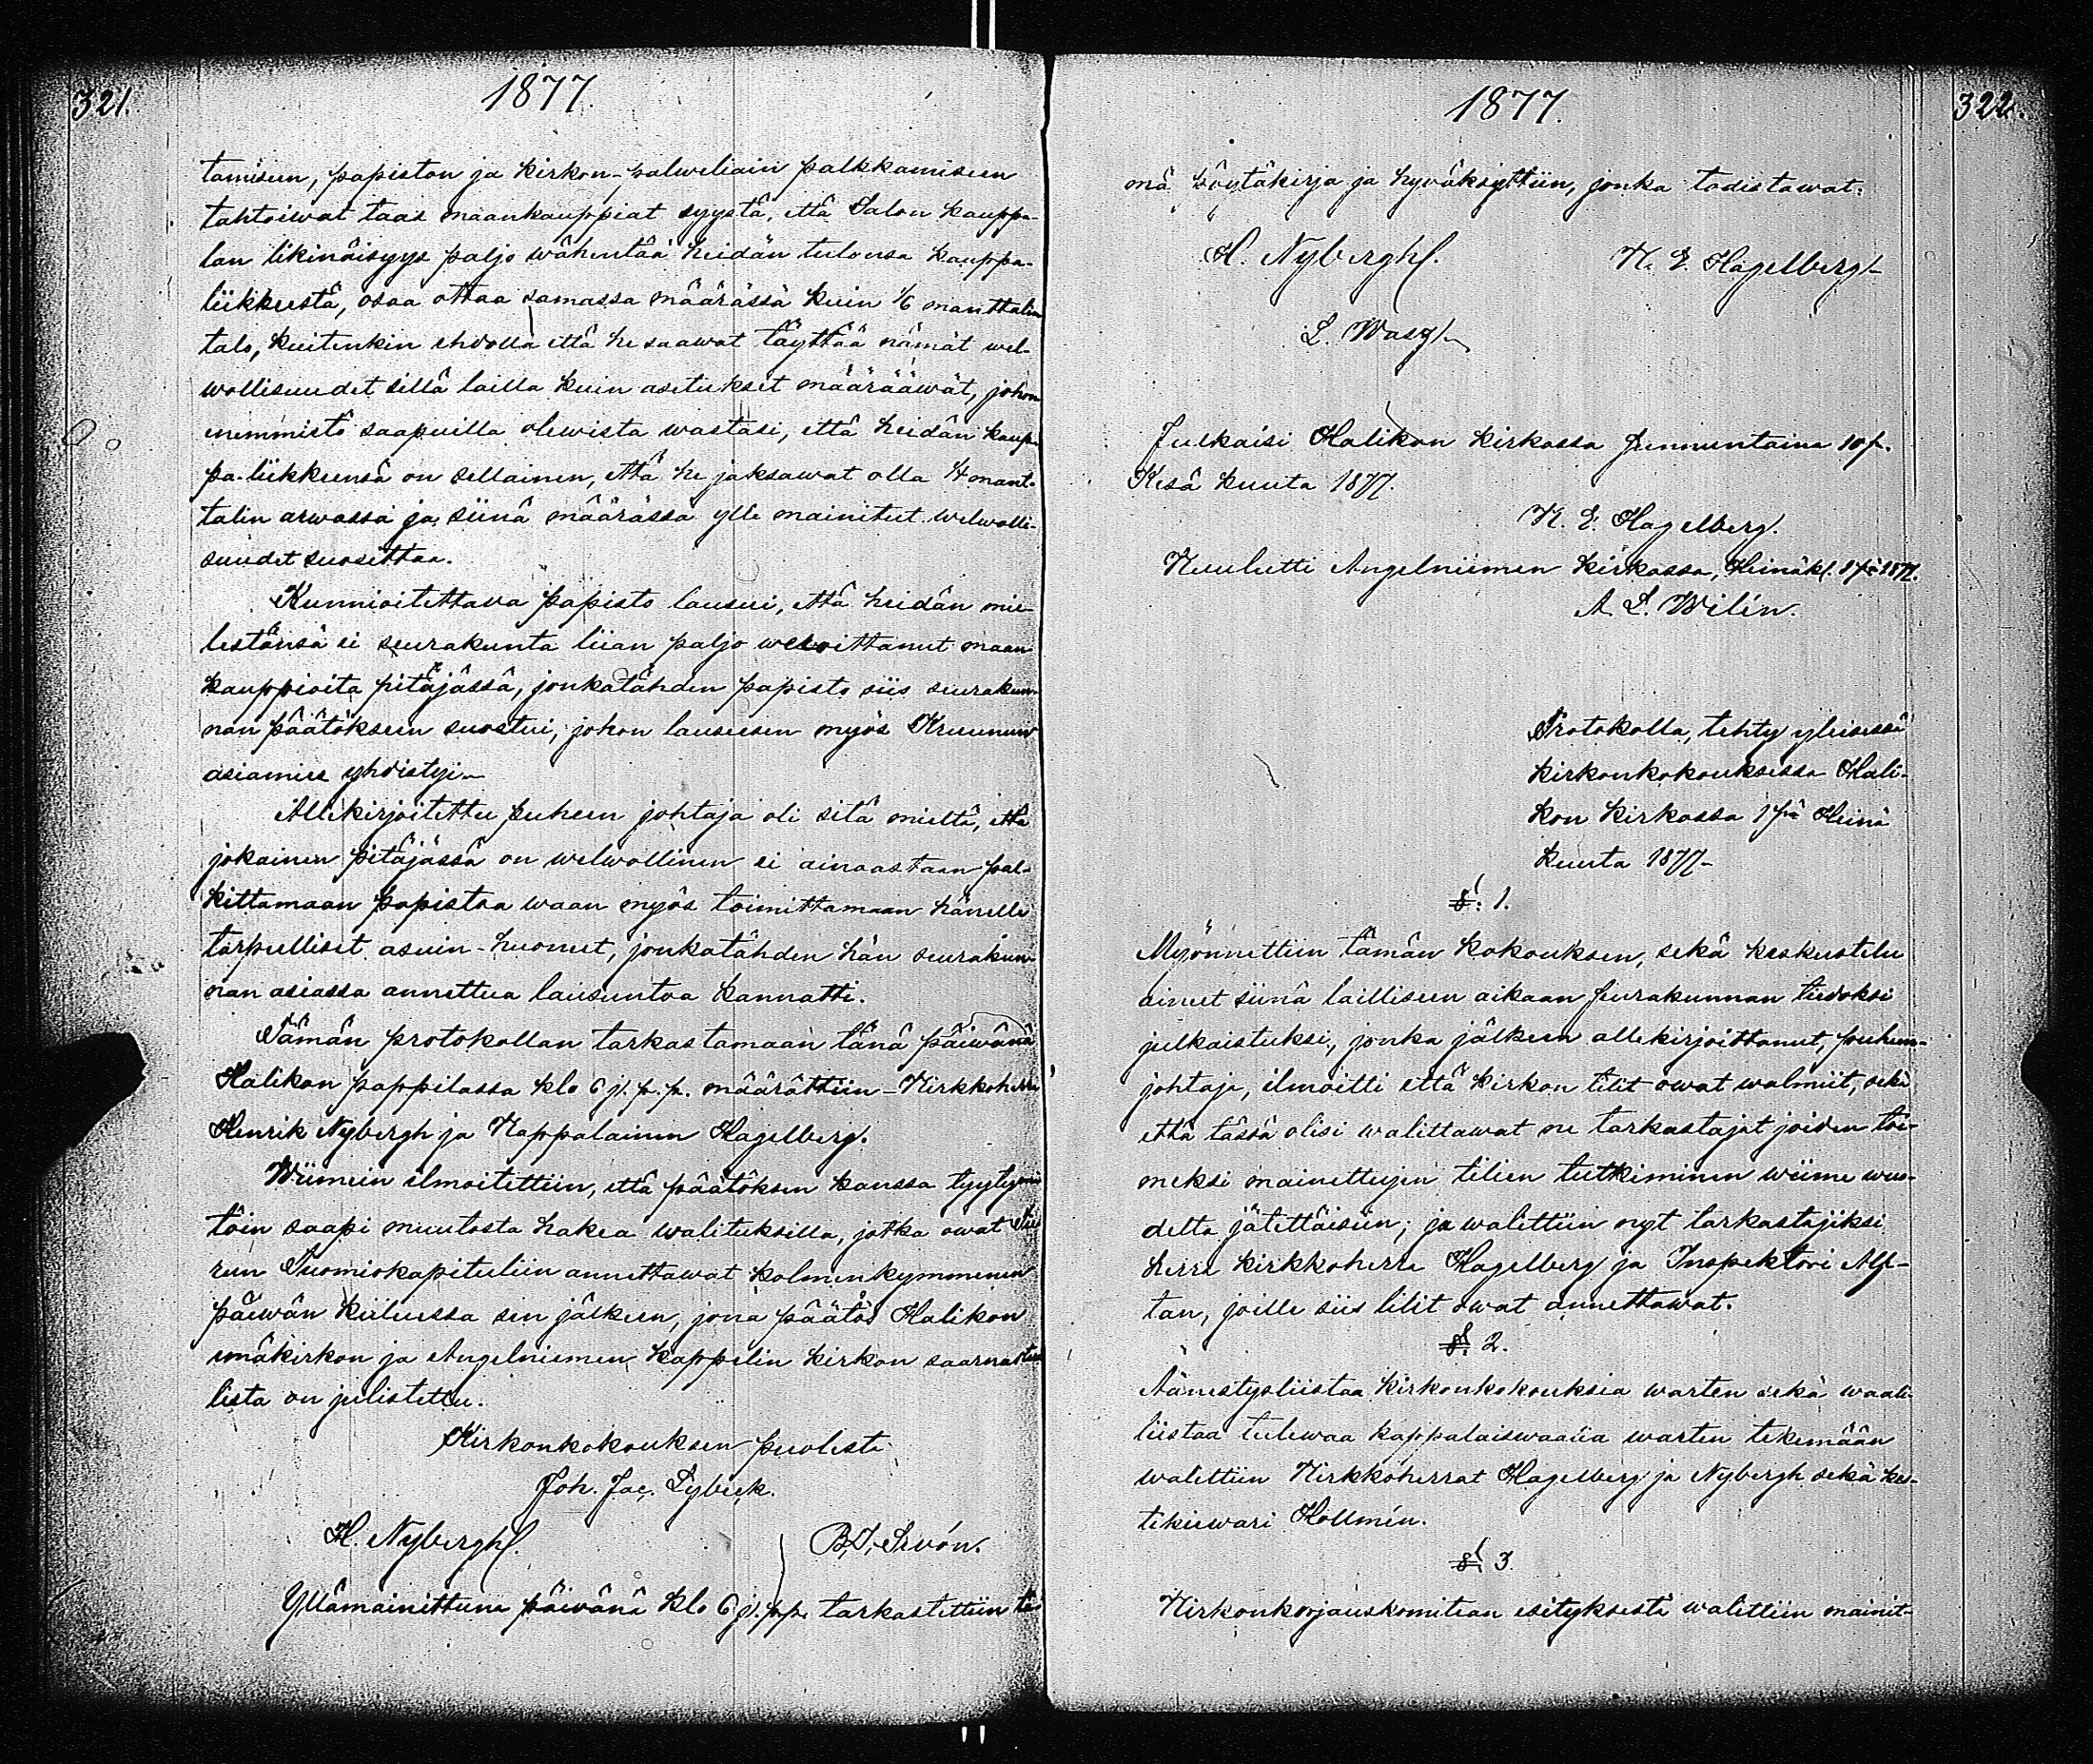 321.
1877.
tamiseen, papiston ja kirkon-palweliain palkkamiseen
tahtoiwat taas maankauppiat syystä, että Salon kauppa-
lan likinäisyys paljo wähentää heidän tulonsa kauppa-
liikkeestä, osaa ottaa samassa määrässä kuin 1/6 manttalin
talo, kuitenkin ehdolla että he saawat täyttää nämät wel-
wollisuudet sillä lailla kuin asetukset määrääwät, johon
enemmistö saapuilla olewista wastasi, että heidän kaup-
pa-liikkeensä on sellainen, että he jaksawat olla 1/4 mant-
talin arwossa ja siinä määrässä ylle mainitut welwolli-
suudet suosittaa.
Kunnioitettava papisto lausui, että heidän mie-
lestänsä ei seurakunta liian paljo weloittanut maan
kauppioita pitäjässä, jonkatähden papisto siis seurakun-
nan päätökseen suostui, johon lauseesen myös Kruunun
asiamies yhdistyi.
Allekirjoitettu puheen johtaja oli sitä mieltä, että
jokainen pitäjässä on welwollinen ei ainoastaan pal-
kittamaan papistoa waan myös toimittamaan hänelle
tarpeelliset asuin-huoneet, jonkatähden hän seurakun-
nan asiassa annettua lausuntoa kannatti.
Tämän protokollan tarkastamaan tänä päiwänä
Halikon pappilassa klo 6 j. p. p. määrättiin Kirkkoherra
Henrik Nybergh ja Kappalainen Hagelberg.
Wiimein ilmoitettiin, että päätöksen kanssa tyytymä-
töin saapi muutosta hakea walituksella, jotka owat
ren Tuomiokapituliin annettawat kolmenkymmenen
päiwän kuluessa sen jälkeen, jona päätös Halikon
emäkirkon ja Angelniemen kappelin kirkon saarnatuo-
lista on julistettu.
Kirkonkokouksen puolesta
Joh. Jac. Lybeck.
H. Nybergh.
Yllämainittuna päivänä klo 6 j. p. p. tarkastettiin tä-
1877.
322.
mä pöytäkirja ja hyväksyttiin, jonka todistawat.
H. Nybergh.
K. E. Hagelberg
Julkaisi Halikon kirkossa sunnuntaina 10 p.
Kesä kuuta 1877.
K. E. Hagelberg.
Kuulutti Angelniemen kirkossa, Heinäk. 1 pä 1877.
A. L. Wilén.
Protokolla, tehty yleisessä
kirkonkokouksessa Hali-
kon kirkossa 1 pä Heinä
kuuta 1877
§. 1.
Myönnettiin tämän kokouksen, sekä keskustelu
aineet siinä lailliseen aikaan seurakunnan tiedoksi
julkaistuksi, jonka jälkeen allekirjoittanut, puheen-
johtaja, ilmoitti että kirkon tilit owat walmiit, sekä
että tässä olisi walittawat ne tarkastajat joiden toi-
meksi mainittujen tilien tutkiminen wiime wuo-
delta jätettäisiin; ja walittiin nyt tarkastajiksi
herra kirkkoherra Hagelberg ja Inspektori Alf-
tan, joille siis tilit owat annettawat.
§. 2.
Äänestysliistaa kirkonkokouksia warten sekä waali-
liistaa tulewaa kappalaiswaalia warten tekemään
walittiin Kirkkoherrat Hagelberg ja Nybergh sekä kes-
tikiewari Hollmén.
§. 3.
Kirkonkorjauskomitean esityksestä walittiin mainit-